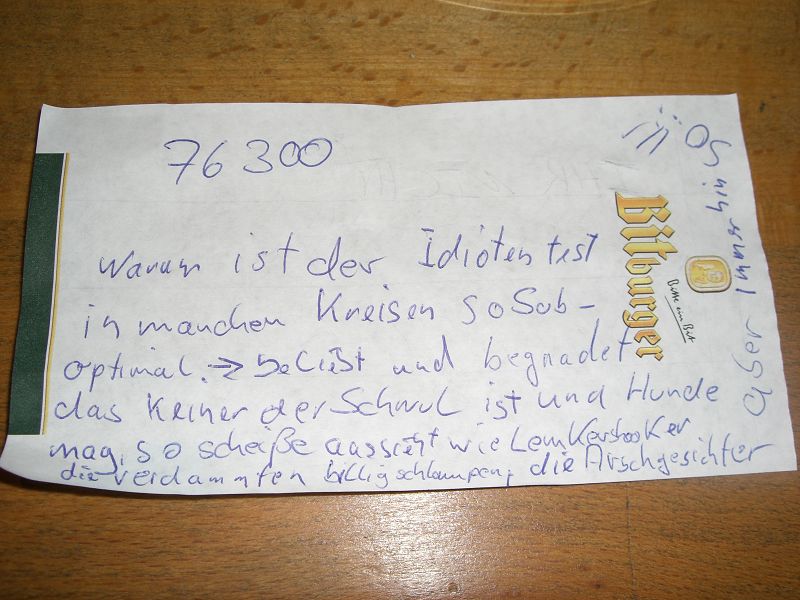 76 300
Warum ist der Idiotentest
in manchen Kreisen so Sub-
optimal. → beliebt und begnadet
das Keiner der Schwul ist und Hunde
mag, so scheiße aussieht wie
die verdammten billigschlampen, die Arschgesichter
aber Immer hin
Bitburger
Bitte ein Bit